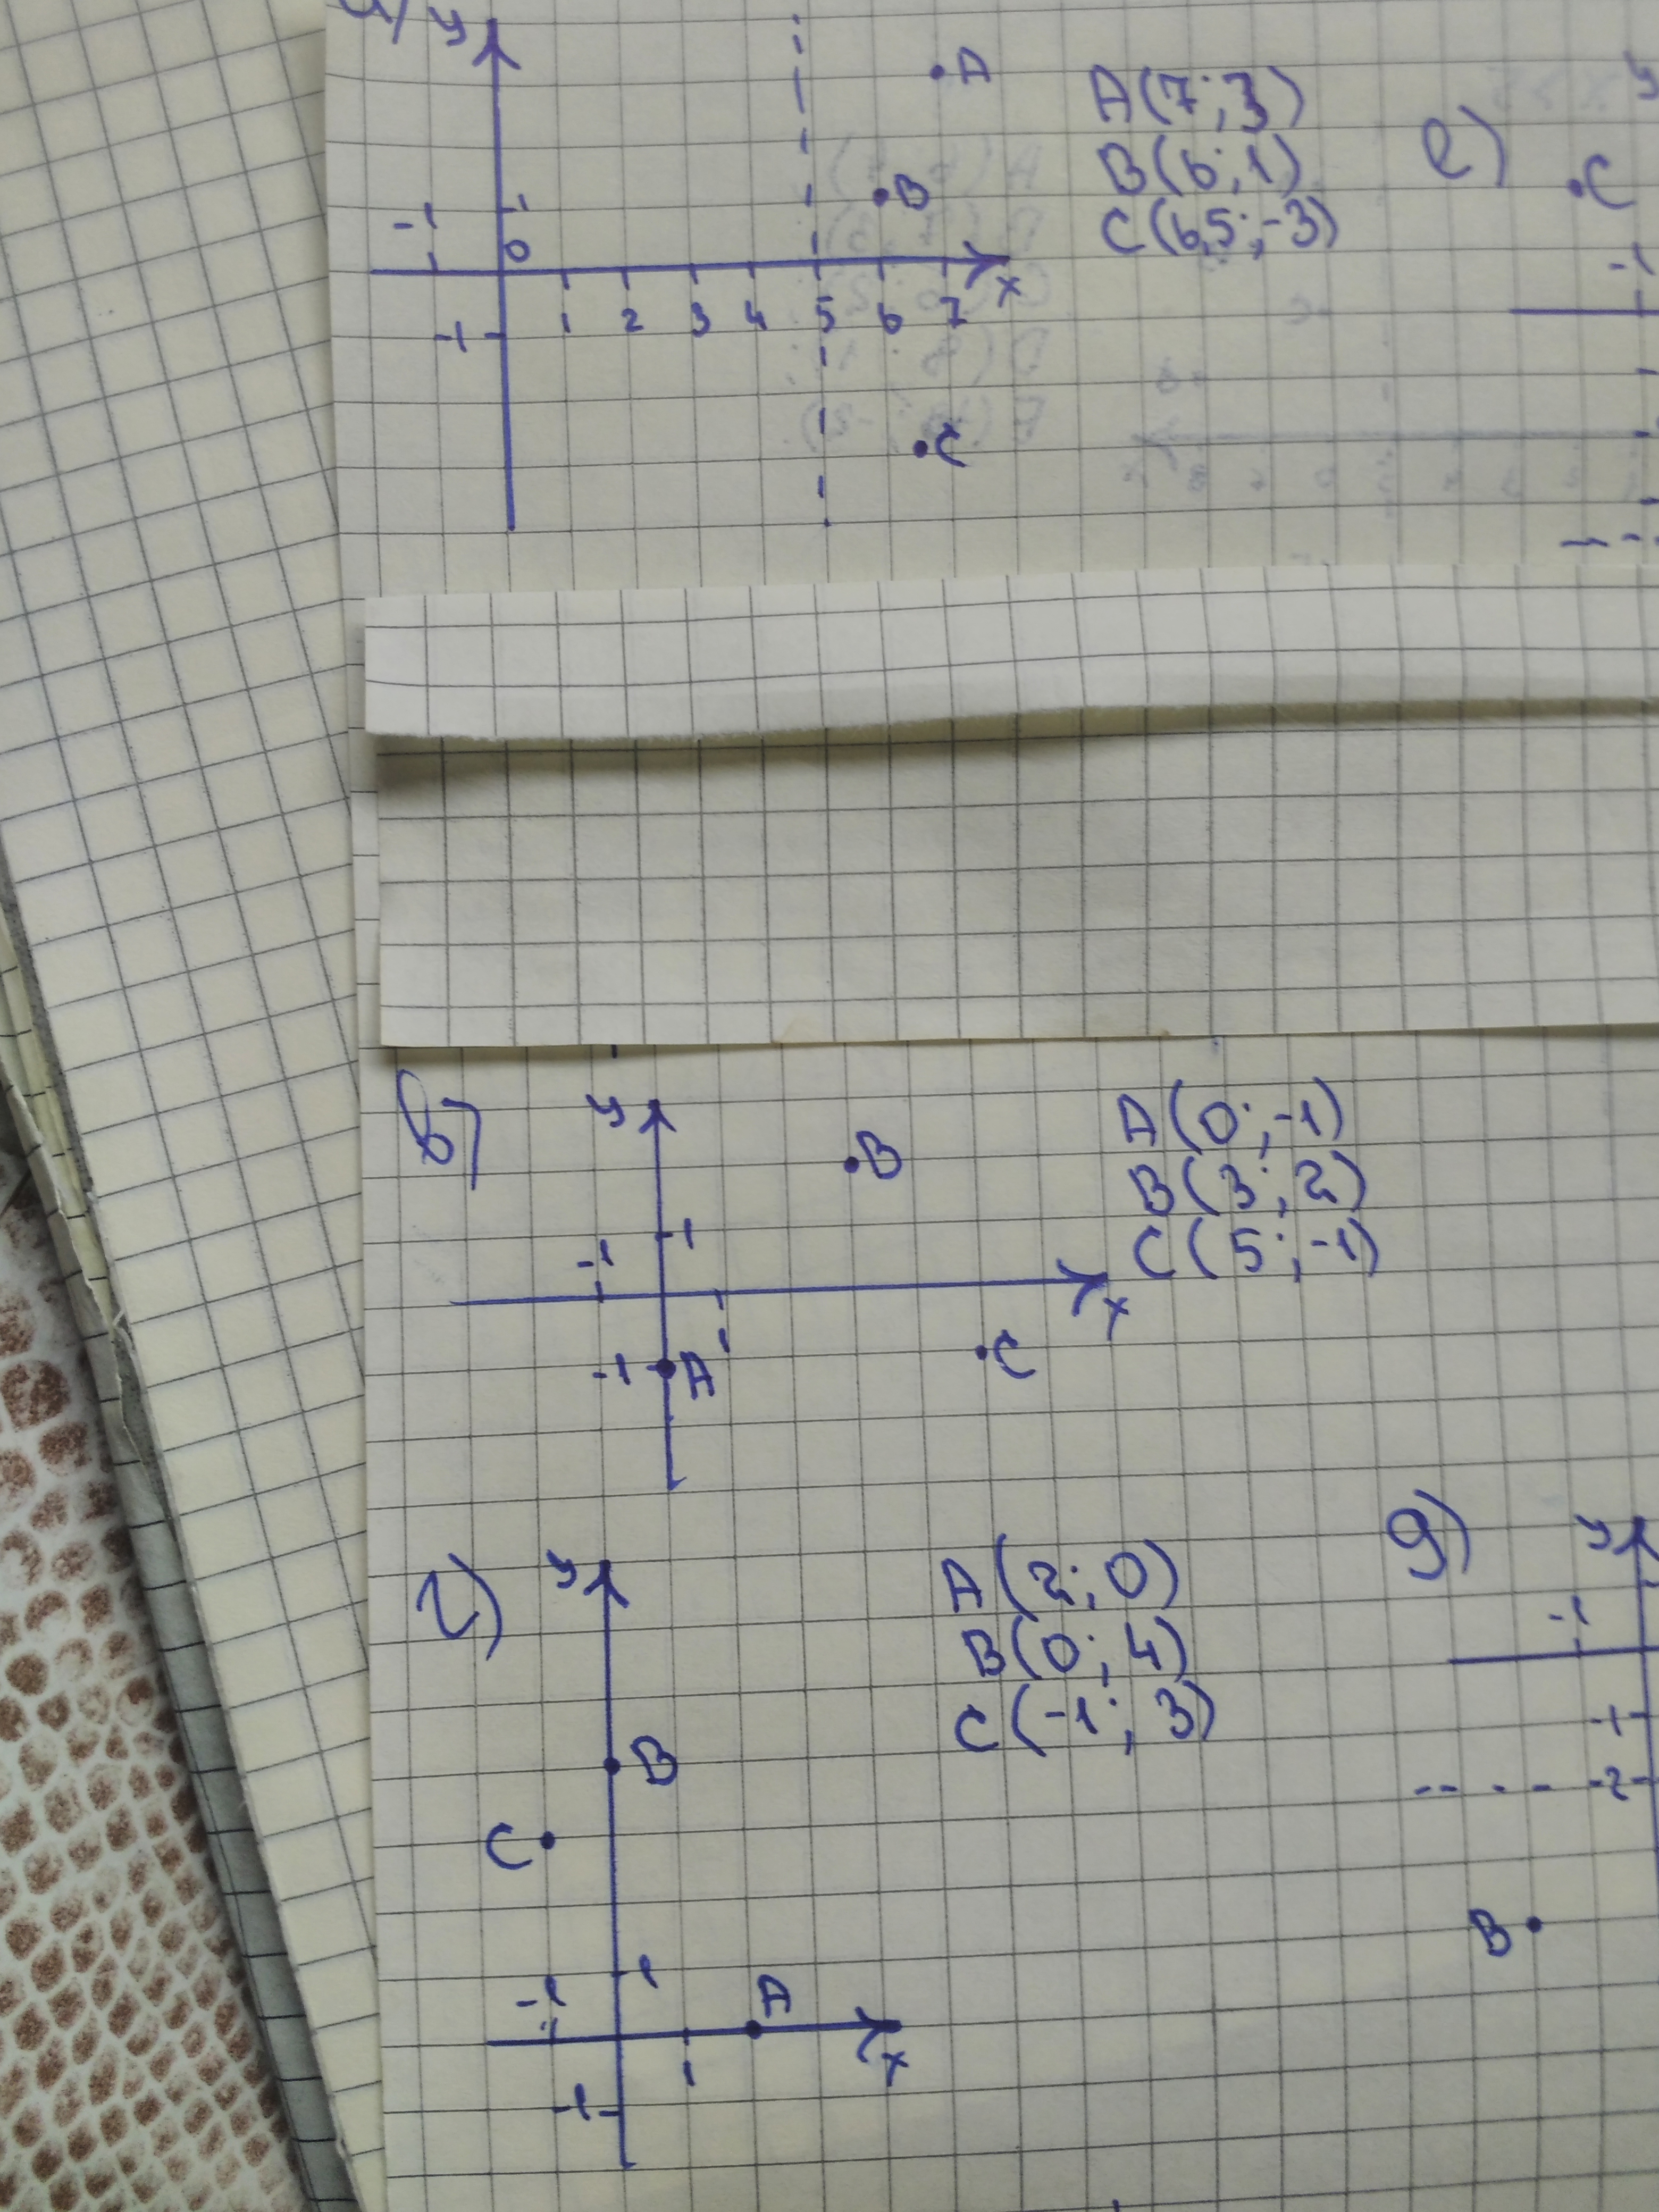 у
A
A(7; 3)
B
B(6; 1)
C(6,5; -3)
е)
C
-1
1
0
-1
x
1 2 3 4 5 6 7
-1
C
в)
у
B
A(0; -1)
B(3; 2)
C(5; -1)
1
-1
x
1
-1
A
C
г)
у
A(2; 0)
B(0; 4)
C(-1; 3)
B
C
1
-1
A
x
1
-1
д)
у
-1
-1
-2
B